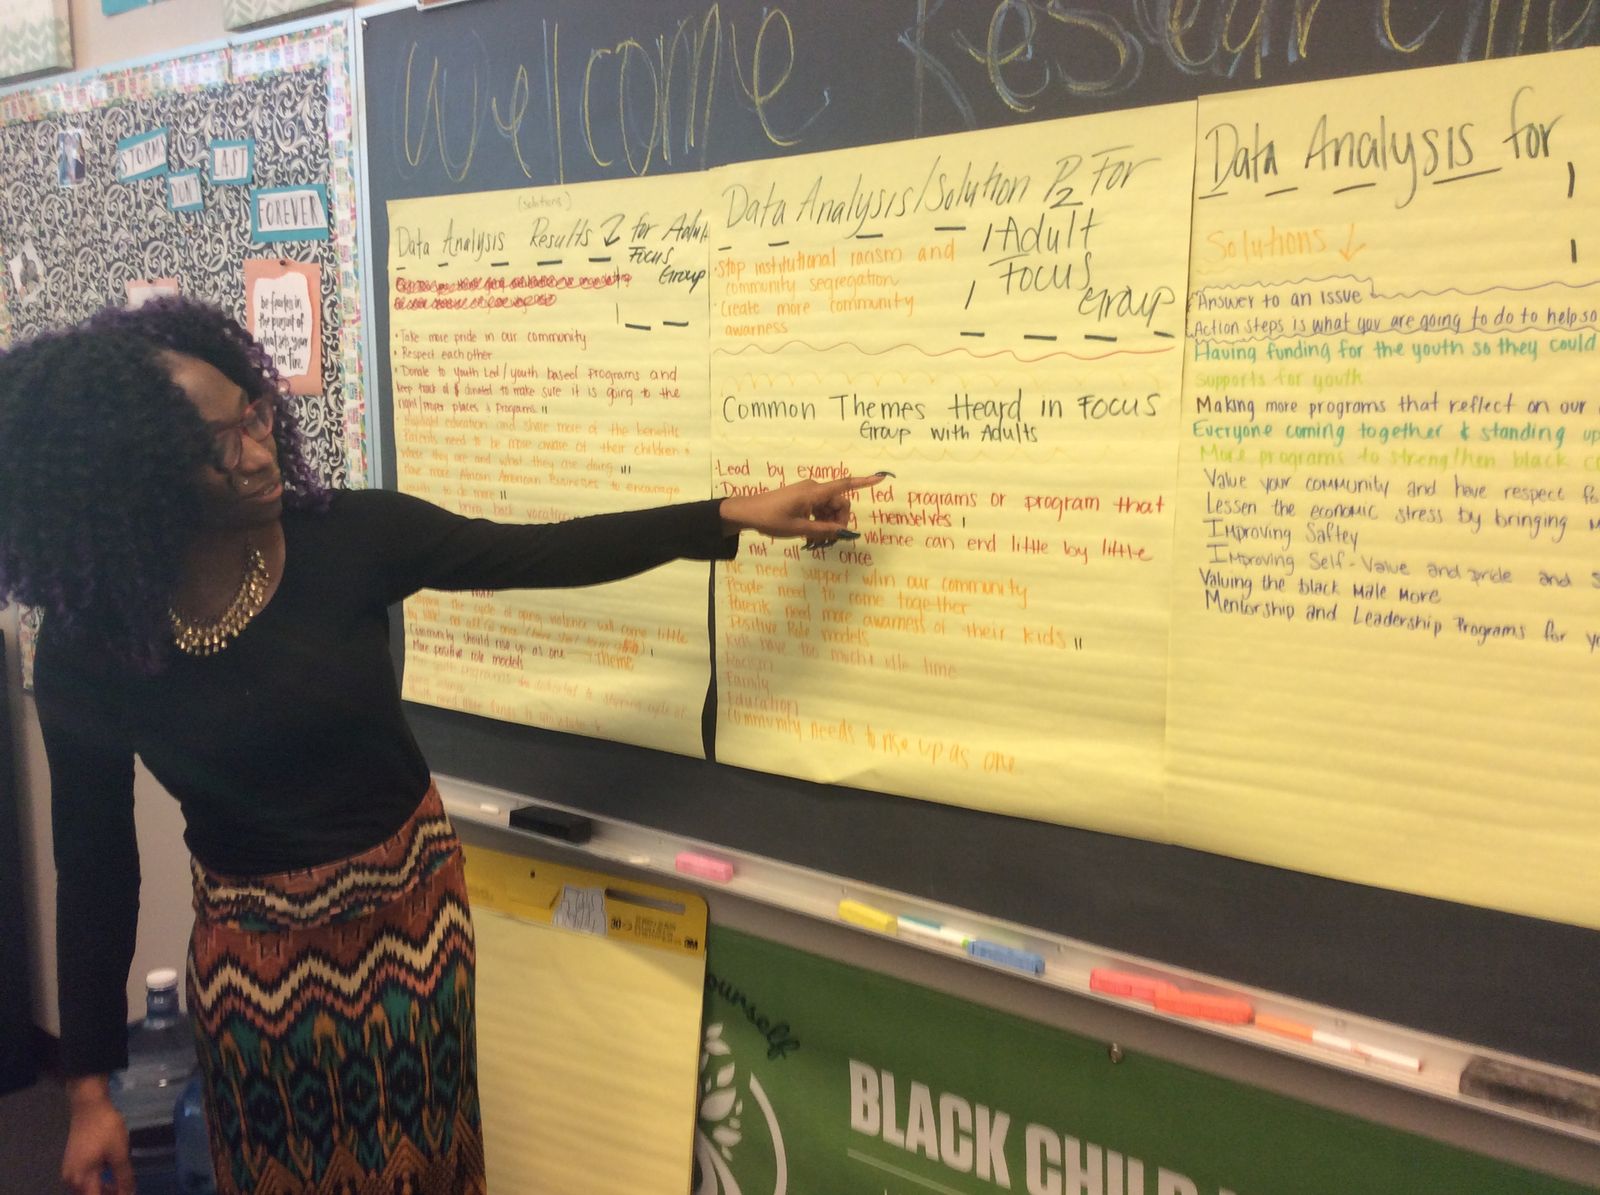 Welcome Research
STORMS
DON'T
LAST
FOREVER
be fearless in
the pursuit of
what sets your
on fire.
(solutions)
Data Analysis Results 2 for Adult
Focus
Group
• Take more pride in our community
• Respect each other
• Donate to Youth Led/youth based programs and
keep track of $ donated to make sure it is going to the
right/proper places & Programs. 11
• Highlight education and share more of the benefits
Parents need to be more aware of their children:
where they are and what they are doing 111
Have more African American Businesses to encourage
youth to do more 11
bring back
the cycle of violence will come little
Community should rise up as one Theme
More positive role models
Data Analysis/Solution P2 For
Adult
Focus
Group
• Stop institutional racism and
community segregation
• Create more community
awarness
Common Themes Heard in Focus
Group with Adults
• Lead by example
• Donate led programs or program that
themselves 1
violence can end little by little
not all at once
We need support w/in our community
• People need to come together
• Parents need more awarness of their kids 11
Positive Role models
Kids have too much idle time
Racism
Family
Education
Community needs to rise up as one.
Data Analysis for
Solutions
Answer to an issue
Action steps is what you are going to do to help so
Having funding for the youth so they could
supports for youth
Making more programs that reflect on our
Everyone coming together & standing up
More programs to strengthen black
Value your community and have respect
Lessen the economic stress by bringing
Improving Saftey
Improving Self-Value and pride and
Valuing the black male more
Mentorship and Leadership Programs for
30
3M
ourself
BLACK CHILD